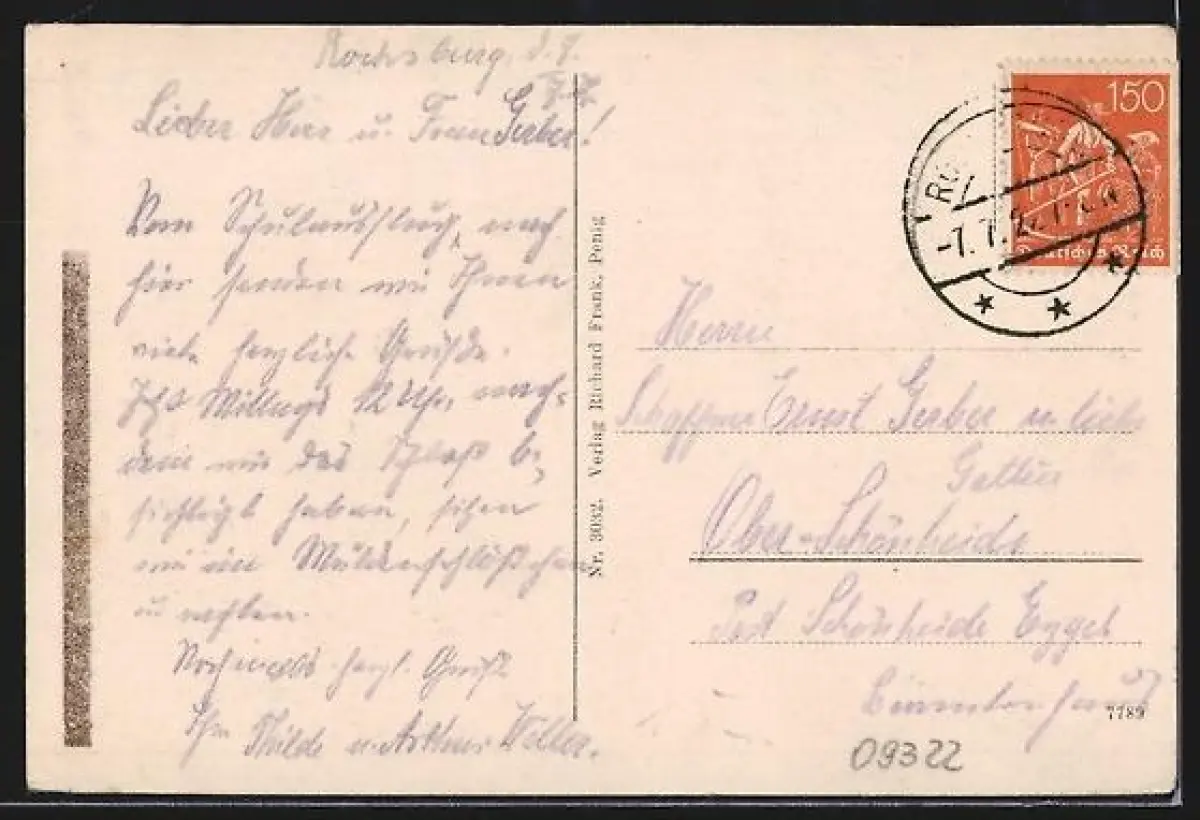 Rochsburg, d. 7.
7.22
Lieber Herr u. Frau Gerber!
Vom Schulausflug nach
hier senden wir Ihnen
viele herzliche Grüße.
Mittags 12 Uhr, nach-
dem wir das Schloß be-
sichtigt haben, sitzen
wir im Muldenschlößchen
Nochmals herzl. Grüße
Ihre Thilde u. Arthur Weller.
Nr. 3032. Verlag Richard Frank, Penig
150
Deutsches Reich
-7.7.2
Herrn
Schaffner Ernst Gerber u. liebe
Gattin
Ober-Schönheide
Post Schönheide Erzgeb
Beamtenhaus
7789
09322